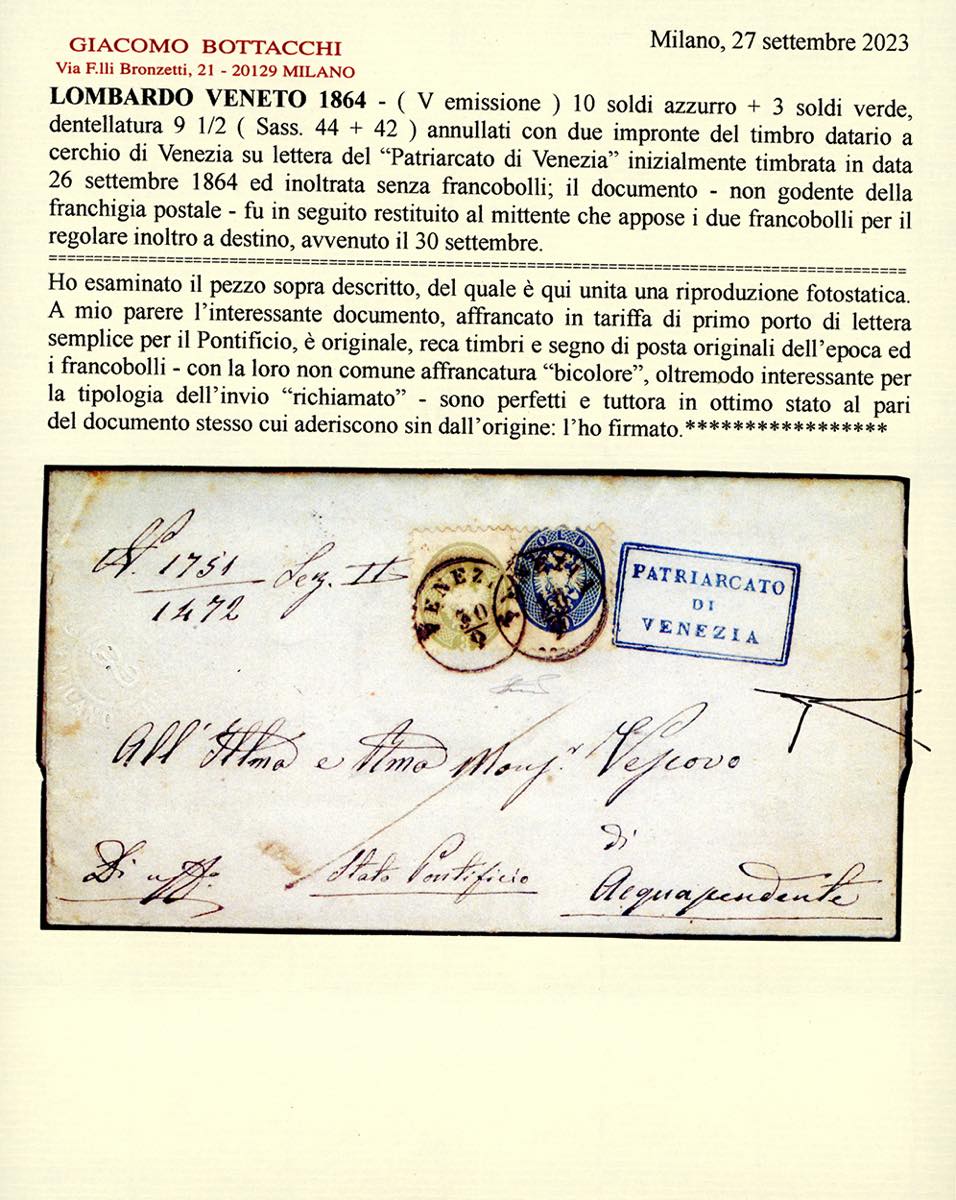 GIACOMO BOTTACCHI
Via F.lli Bronzetti, 21 - 20129 MILANO
Milano, 27 settembre 2023
LOMBARDO VENETO 1864 - ( V emissione ) 10 soldi azzurro + 3 soldi verde,
dentellatura 9 1/2 ( Sass. 44 + 42 ) annullati con due impronte del timbro datario a
cerchio di Venezia su lettera del “Patriarcato di Venezia” inizialmente timbrata in data
26 settembre 1864 ed inoltrata senza francobolli; il documento - non godente della
franchigia postale - fu in seguito restituito al mittente che appose i due francobolli per il
regolare inoltro a destino, avvenuto il 30 settembre.
==========================================================================================
Ho esaminato il pezzo sopra descritto, del quale è qui unita una riproduzione fotostatica.
A mio parere l’interessante documento, affrancato in tariffa di primo porto di lettera
semplice per il Pontificio, è originale, reca timbri e segno di posta originali dell’epoca ed
i francobolli - con la loro non comune affrancatura “bicolore”, oltremodo interessante per
la tipologia dell’invio “richiamato” - sono perfetti e tuttora in ottimo stato al pari
del documento stesso cui aderiscono sin dall’origine: l’ho firmato.*****************
N. 1751 Sez. II
1472
VENEZIA
30/9
PATRIARCATO
DI
VENEZIA
MILANO
All' Illmo e Rmo Monsr Vescovo
di
Di uffo Stato Pontificio Acquapendente